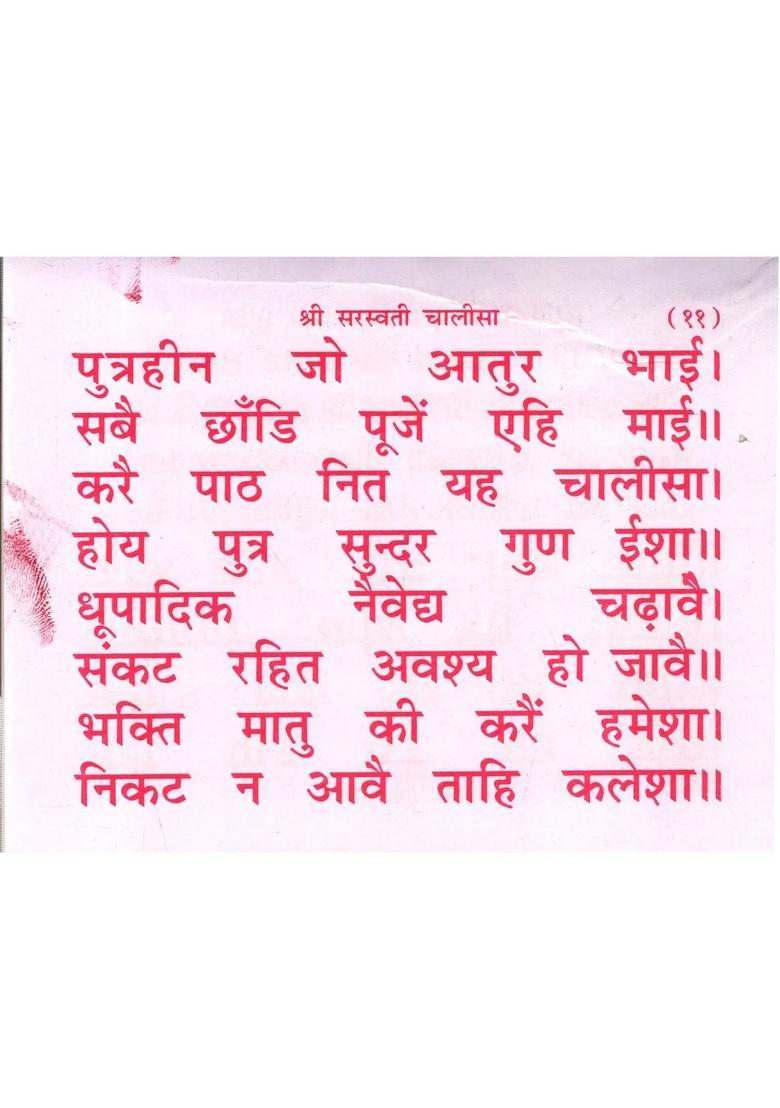 श्री सरस्वती चालीसा (११)
पुत्रहीन जो आतुर भाई।
सबै छाँडि पूजें एहि माई॥
करै पाठ नित यह चालीसा।
होय पुत्र सुन्दर गुण ईशा॥
धूपादिक नैवेद्य चढ़ावै।
संकट रहित अवश्य हो जावै॥
भक्ति मातु की करैं हमेशा।
निकट न आवै ताहि कलेशा॥